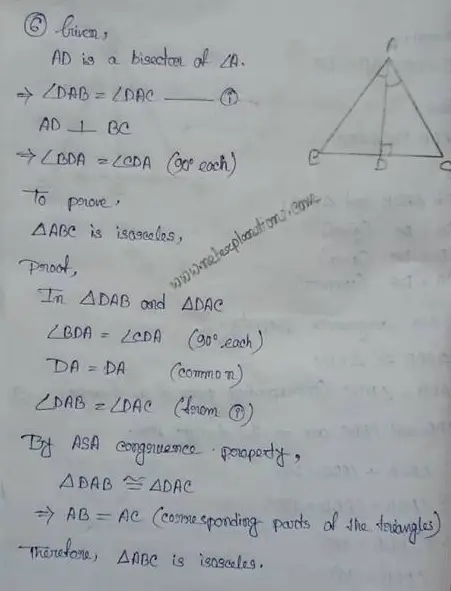 ⑥ Given,
AD is a bisector of ∠A.
⇒ ∠DAB = ∠DAC —— (i)
AD ⊥ BC
⇒ ∠BDA = ∠CDA (90° each)
To prove,
△ABC is isosceles,
Proof,
In △DAB and △DAC
∠BDA = ∠CDA (90° each)
DA = DA (common)
∠DAB = ∠DAC (from (i))
By ASA congruence property,
△DAB ≅ △DAC
⇒ AB = AC (corresponding parts of the triangles)
Therefore, △ABC is isosceles.
A
B
D
C
www.netexplanations.com